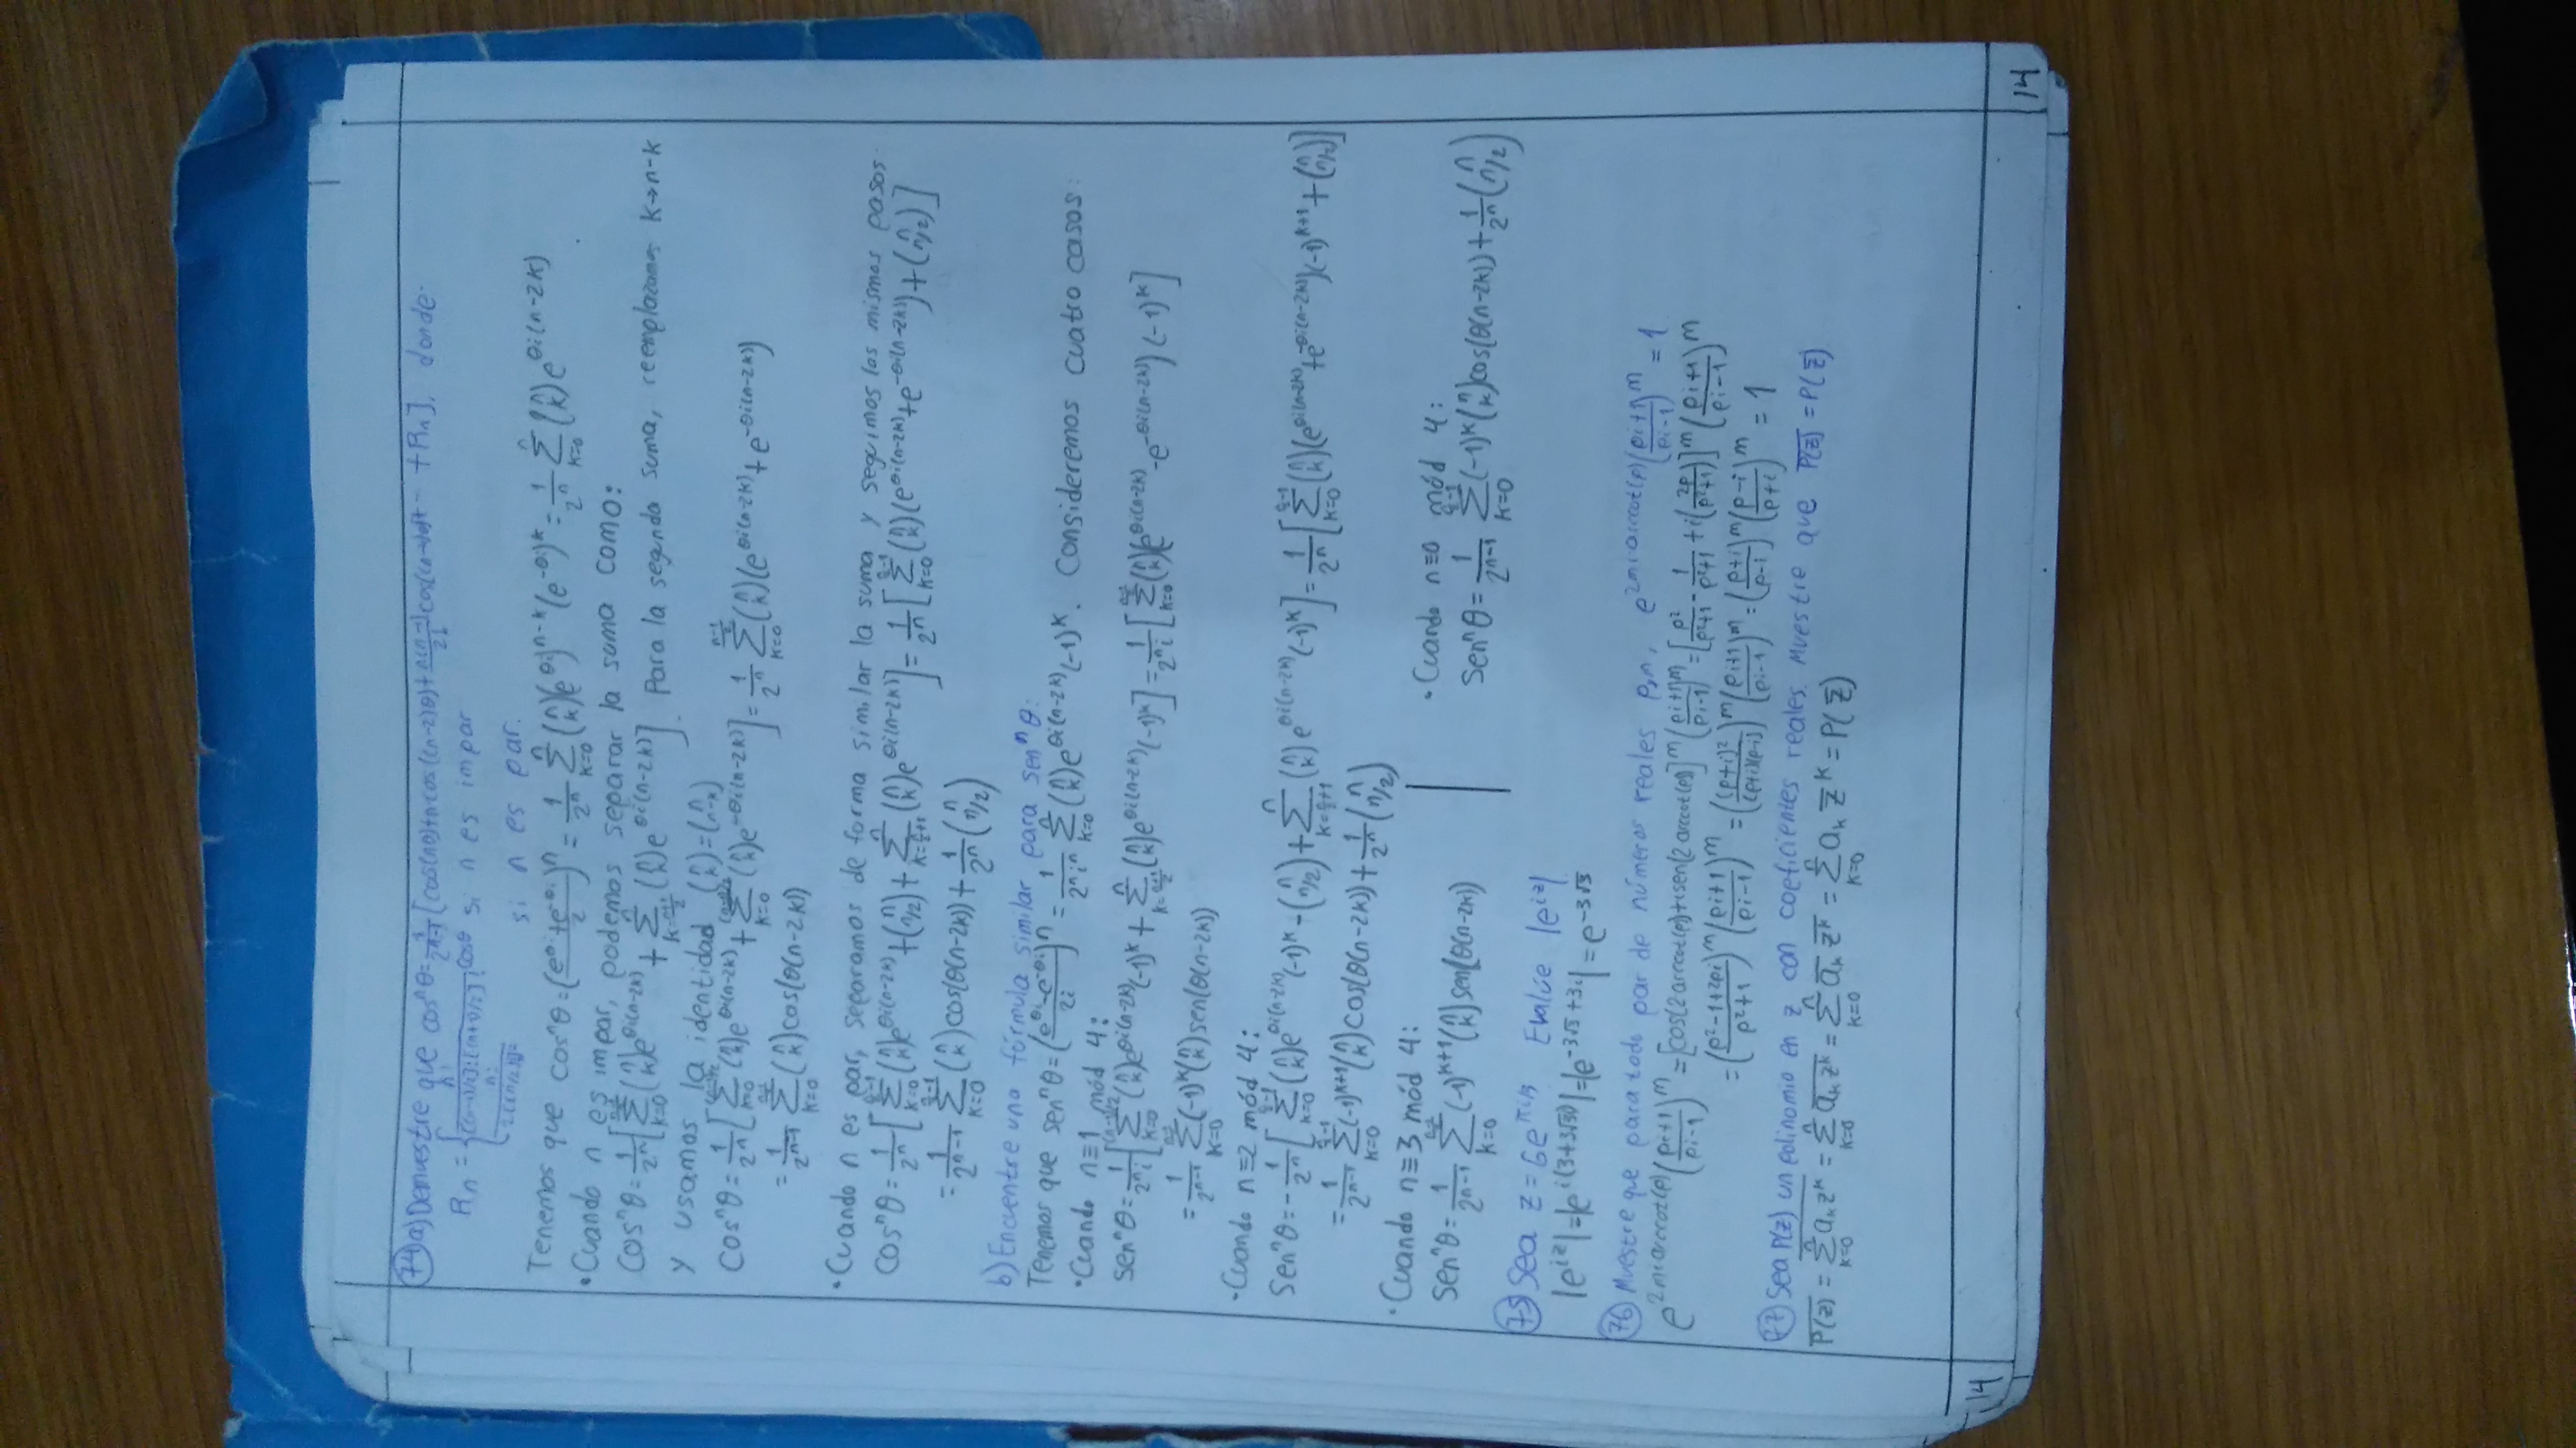 74 a) Demuestre que cosⁿθ = 1/2ⁿ⁻¹ [cos(nθ)+n cos((n-2)θ)+ n(n-1)/2! cos((n-4)θ)+ ··· +Rₙ], donde:
Rₙ = { n!/([(n-1)/2]![(n+1)/2]!) cosθ si n es impar
n!/(2[(n/2)!]²) si n es par.
Tenemos que cosⁿθ = ((e^{θi}+e^{-θi})/2)ⁿ = 1/2ⁿ Σ_{k=0}^{n} (n k)(e^{θi})^{n-k}(e^{-θi})^k = 1/2ⁿ Σ_{k=0}^{n} (n k) e^{θi(n-2k)}
•Cuando n es impar, podemos separar la suma como:
cosⁿθ = 1/2ⁿ [Σ_{k=0}^{(n-1)/2} (n k) e^{θi(n-2k)} + Σ_{k=(n+1)/2}^{n} (n k) e^{θi(n-2k)}]. Para la segunda suma, reemplazamos k→n-k
y usamos la identidad (n k)=(n n-k)
cosⁿθ = 1/2ⁿ [Σ_{k=0}^{(n-1)/2} (n k) e^{θi(n-2k)} + Σ_{k=0}^{(n-1)/2} (n k) e^{-θi(n-2k)}] = 1/2ⁿ Σ_{k=0}^{(n-1)/2} (n k)(e^{θi(n-2k)}+e^{-θi(n-2k)})
= 1/2ⁿ⁻¹ Σ_{k=0}^{(n-1)/2} (n k) cos(θ(n-2k))
•Cuando n es par, separamos de forma similar la suma y seguimos los mismos pasos:
cosⁿθ = 1/2ⁿ [Σ_{k=0}^{n/2-1} (n k) e^{θi(n-2k)} + (n n/2) + Σ_{k=n/2+1}^{n} (n k) e^{θi(n-2k)}] = 1/2ⁿ [Σ_{k=0}^{n/2-1} (n k)(e^{θi(n-2k)}+e^{-θi(n-2k)}) + (n n/2)]
= 1/2ⁿ⁻¹ Σ_{k=0}^{n/2-1} (n k) cos(θ(n-2k)) + 1/2ⁿ (n n/2)
b) Encuentre una fórmula similar para senⁿθ:
Tenemos que senⁿθ = ((e^{θi}-e^{-θi})/2i)ⁿ = 1/(2ⁿiⁿ) Σ_{k=0}^{n} (n k) e^{θi(n-2k)} (-1)^k. Consideremos cuatro casos:
•Cuando n≡1 mód 4:
senⁿθ = 1/(2ⁿi) [Σ_{k=0}^{(n-1)/2} (n k) e^{θi(n-2k)} (-1)^k + Σ_{k=(n+1)/2}^{n} (n k) e^{θi(n-2k)} (-1)^k] = 1/(2ⁿi) [Σ_{k=0}^{(n-1)/2} (n k)(e^{θi(n-2k)}-e^{-θi(n-2k)}) (-1)^k]
= 1/2ⁿ⁻¹ Σ_{k=0}^{(n-1)/2} (-1)^k (n k) sen(θ(n-2k))
•Cuando n≡2 mód 4:
senⁿθ = -1/2ⁿ [Σ_{k=0}^{n/2-1} (n k) e^{θi(n-2k)} (-1)^k - (n n/2) + Σ_{k=n/2+1}^{n} (n k) e^{θi(n-2k)} (-1)^k] = 1/2ⁿ [Σ_{k=0}^{n/2-1} (n k)(e^{θi(n-2k)}+e^{-θi(n-2k)})(-1)^{k+1} + (n n/2)]
= 1/2ⁿ⁻¹ Σ_{k=0}^{n/2-1} (-1)^{k+1} (n k) cos(θ(n-2k)) + 1/2ⁿ (n n/2)
•Cuando n≡3 mód 4:
senⁿθ = 1/2ⁿ⁻¹ Σ_{k=0}^{(n-1)/2} (-1)^{k+1} (n k) sen(θ(n-2k))
•Cuando n≡0 mód 4:
senⁿθ = 1/2ⁿ⁻¹ Σ_{k=0}^{n/2-1} (-1)^k (n k) cos(θ(n-2k)) + 1/2ⁿ (n n/2)
75 Sea z = 6e^{πi/3} Evalúe |e^{iz}|
|e^{iz}| = |e^{i(3+3√3i)}| = |e^{-3√3+3i}| = e^{-3√3}
76 Muestre que para todo par de números reales p,n, e^{2mi arccot(p)} ((pi+1)/(pi-1))^m = 1
e^{2mi arccot(p)} ((pi+1)/(pi-1))^m = [cos(2arccot(p))+isen(2arccot(p))]^m ((pi+1)/(pi-1))^m = [p²/(p²+1) - 1/(p²+1) + i(2p/(p²+1))]^m ((pi+1)/(pi-1))^m
= ((p²-1+2pi)/(p²+1))^m ((pi+1)/(pi-1))^m = ((p+i)²/((p+i)(p-i)))^m ((pi+1)/(pi-1))^m = ((p+i)/(p-i))^m ((p-i)/(p+i))^m = 1
77 Sea P(z) un polinomio en z con coeficientes reales. Muestre que \overline{P(z)} = P(z̄)
\overline{P(z)} = \overline{Σ_{k=0}^{n} aₖz^k} = Σ_{k=0}^{n} \overline{aₖz^k} = Σ_{k=0}^{n} \overline{aₖ} \overline{z^k} = Σ_{k=0}^{n} aₖ z̄^k = P(z̄)
14
14